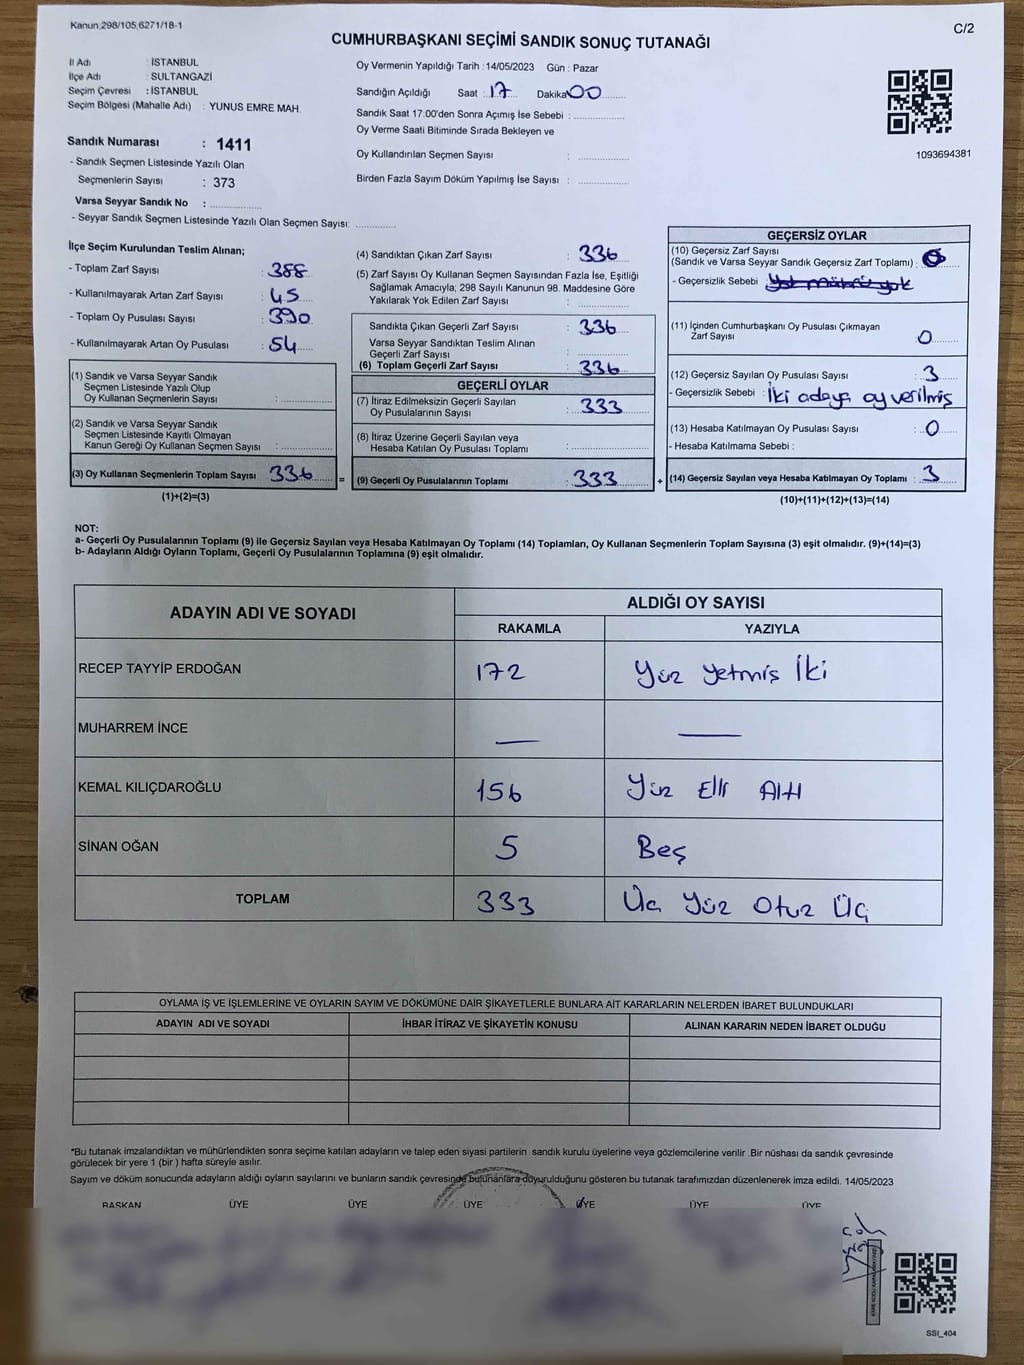 Kanun,298/105,6271/18-1
C/2
CUMHURBAŞKANI SEÇİMİ SANDIK SONUÇ TUTANAĞI
İl Adı : İSTANBUL
İlçe Adı : SULTANGAZİ
Seçim Çevresi : İSTANBUL
Seçim Bölgesi (Mahalle Adı) : YUNUS EMRE MAH.
Sandık Numarası : 1411
- Sandık Seçmen Listesinde Yazılı Olan
Seçmenlerin Sayısı : 373
Varsa Seyyar Sandık No :
- Seyyar Sandık Seçmen Listesinde Yazılı Olan Seçmen Sayısı:
Oy Vermenin Yapıldığı Tarih :14/05/2023 Gün : Pazar
Sandığın Açıldığı Saat : 17 Dakika 00
Sandık Saat 17:00'den Sonra Açımış İse Sebebi :
Oy Verme Saati Bitiminde Sırada Bekleyen ve
Oy Kullandırılan Seçmen Sayısı :
Birden Fazla Sayım Döküm Yapılmış İse Sayısı :
1093694381
İlçe Seçim Kurulundan Teslim Alınan;
- Toplam Zarf Sayısı : 388
- Kullanılmayarak Artan Zarf Sayısı : 45
- Toplam Oy Pusulası Sayısı : 390
- Kullanılmayarak Artan Oy Pusulası : 54
(1) Sandık ve Varsa Seyyar Sandık
Seçmen Listesinde Yazılı Olup
Oy Kullanan Seçmenlerin Sayısı :
(2) Sandık ve Varsa Seyyar Sandık
Seçmen Listesinde Kayıtlı Olmayan
Kanun Gereği Oy Kullanan Seçmen Sayısı :
(3) Oy Kullanan Seçmenlerin Toplam Sayısı 336 =
(1)+(2)=(3)
(4) Sandıktan Çıkan Zarf Sayısı : 336
(5) Zarf Sayısı Oy Kullanan Seçmen Sayısından Fazla İse, Eşitliği
Sağlamak Amacıyla; 298 Sayılı Kanunun 98. Maddesine Göre
Yakılarak Yok Edilen Zarf Sayısı :
Sandıkta Çıkan Geçerli Zarf Sayısı : 336
Varsa Seyyar Sandıktan Teslim Alınan
Geçerli Zarf Sayısı :
(6) Toplam Geçerli Zarf Sayısı : 336
GEÇERLİ OYLAR
(7) İtiraz Edilmeksizin Geçerli Sayılan
Oy Pusulalarının Sayısı : 333
(8) İtiraz Üzerine Geçerli Sayılan veya
Hesaba Katılan Oy Pusulası Toplamı :
(9) Geçerli Oy Pusulalarının Toplamı : 333 +
GEÇERSİZ OYLAR
(10) Geçersiz Zarf Sayısı
(Sandık ve Varsa Seyyar Sandık Geçersiz Zarf Toplamı) : 0
- Geçersizlik Sebebi :
(11) İçinden Cumhurbaşkanı Oy Pusulası Çıkmayan
Zarf Sayısı : 0
(12) Geçersiz Sayılan Oy Pusulası Sayısı : 3
- Geçersizlik Sebebi : İki adaya oy verilmiş
(13) Hesaba Katılmayan Oy Pusulası Sayısı : 0
- Hesaba Katılmama Sebebi :
(14) Geçersiz Sayılan veya Hesaba Katılmayan Oy Toplamı : 3
(10)+(11)+(12)+(13)=(14)
NOT:
a- Geçerli Oy Pusulalarının Toplamı (9) ile Geçersiz Sayılan veya Hesaba Katılmayan Oy Toplamı (14) Toplamları, Oy Kullanan Seçmenlerin Toplam Sayısına (3) eşit olmalıdır. (9)+(14)=(3)
b- Adayların Aldığı Oyların Toplamı, Geçerli Oy Pusulalarının Toplamına (9) eşit olmalıdır.
ADAYIN ADI VE SOYADI ALDIĞI OY SAYISI
RAKAMLA YAZIYLA
RECEP TAYYİP ERDOĞAN 172 Yüz Yetmiş İki
MUHARREM İNCE — —
KEMAL KILIÇDAROĞLU 156 Yüz Elli Altı
SİNAN OĞAN 5 Beş
TOPLAM 333 Üç Yüz Otuz Üç
OYLAMA İŞ VE İŞLEMLERİNE VE OYLARIN SAYIM VE DÖKÜMÜNE DAİR ŞİKAYETLERLE BUNLARA AİT KARARLARIN NELERDEN İBARET BULUNDUKLARI
ADAYIN ADI VE SOYADI İHBAR İTİRAZ VE ŞİKAYETİN KONUSU ALINAN KARARIN NEDEN İBARET OLDUĞU
*Bu tutanak imzalandıktan ve mühürlendikten sonra seçime katılan adayların ve talep eden siyasi partilerin sandık kurulu üyelerine veya gözlemcilerine verilir .Bir nüshası da sandık çevresinde
görülecek bir yere 1 (bir ) hafta süreyle asılır.
Sayım ve döküm sonucunda adayların aldığı oyların sayılarını ve bunların sandık çevresinde bulunanlara duyurulduğunu gösteren bu tutanak tarafımızdan düzenlenerek imza edildi. 14/05/2023
BAŞKAN ÜYE ÜYE ÜYE ÜYE ÜYE ÜYE
SSI_404